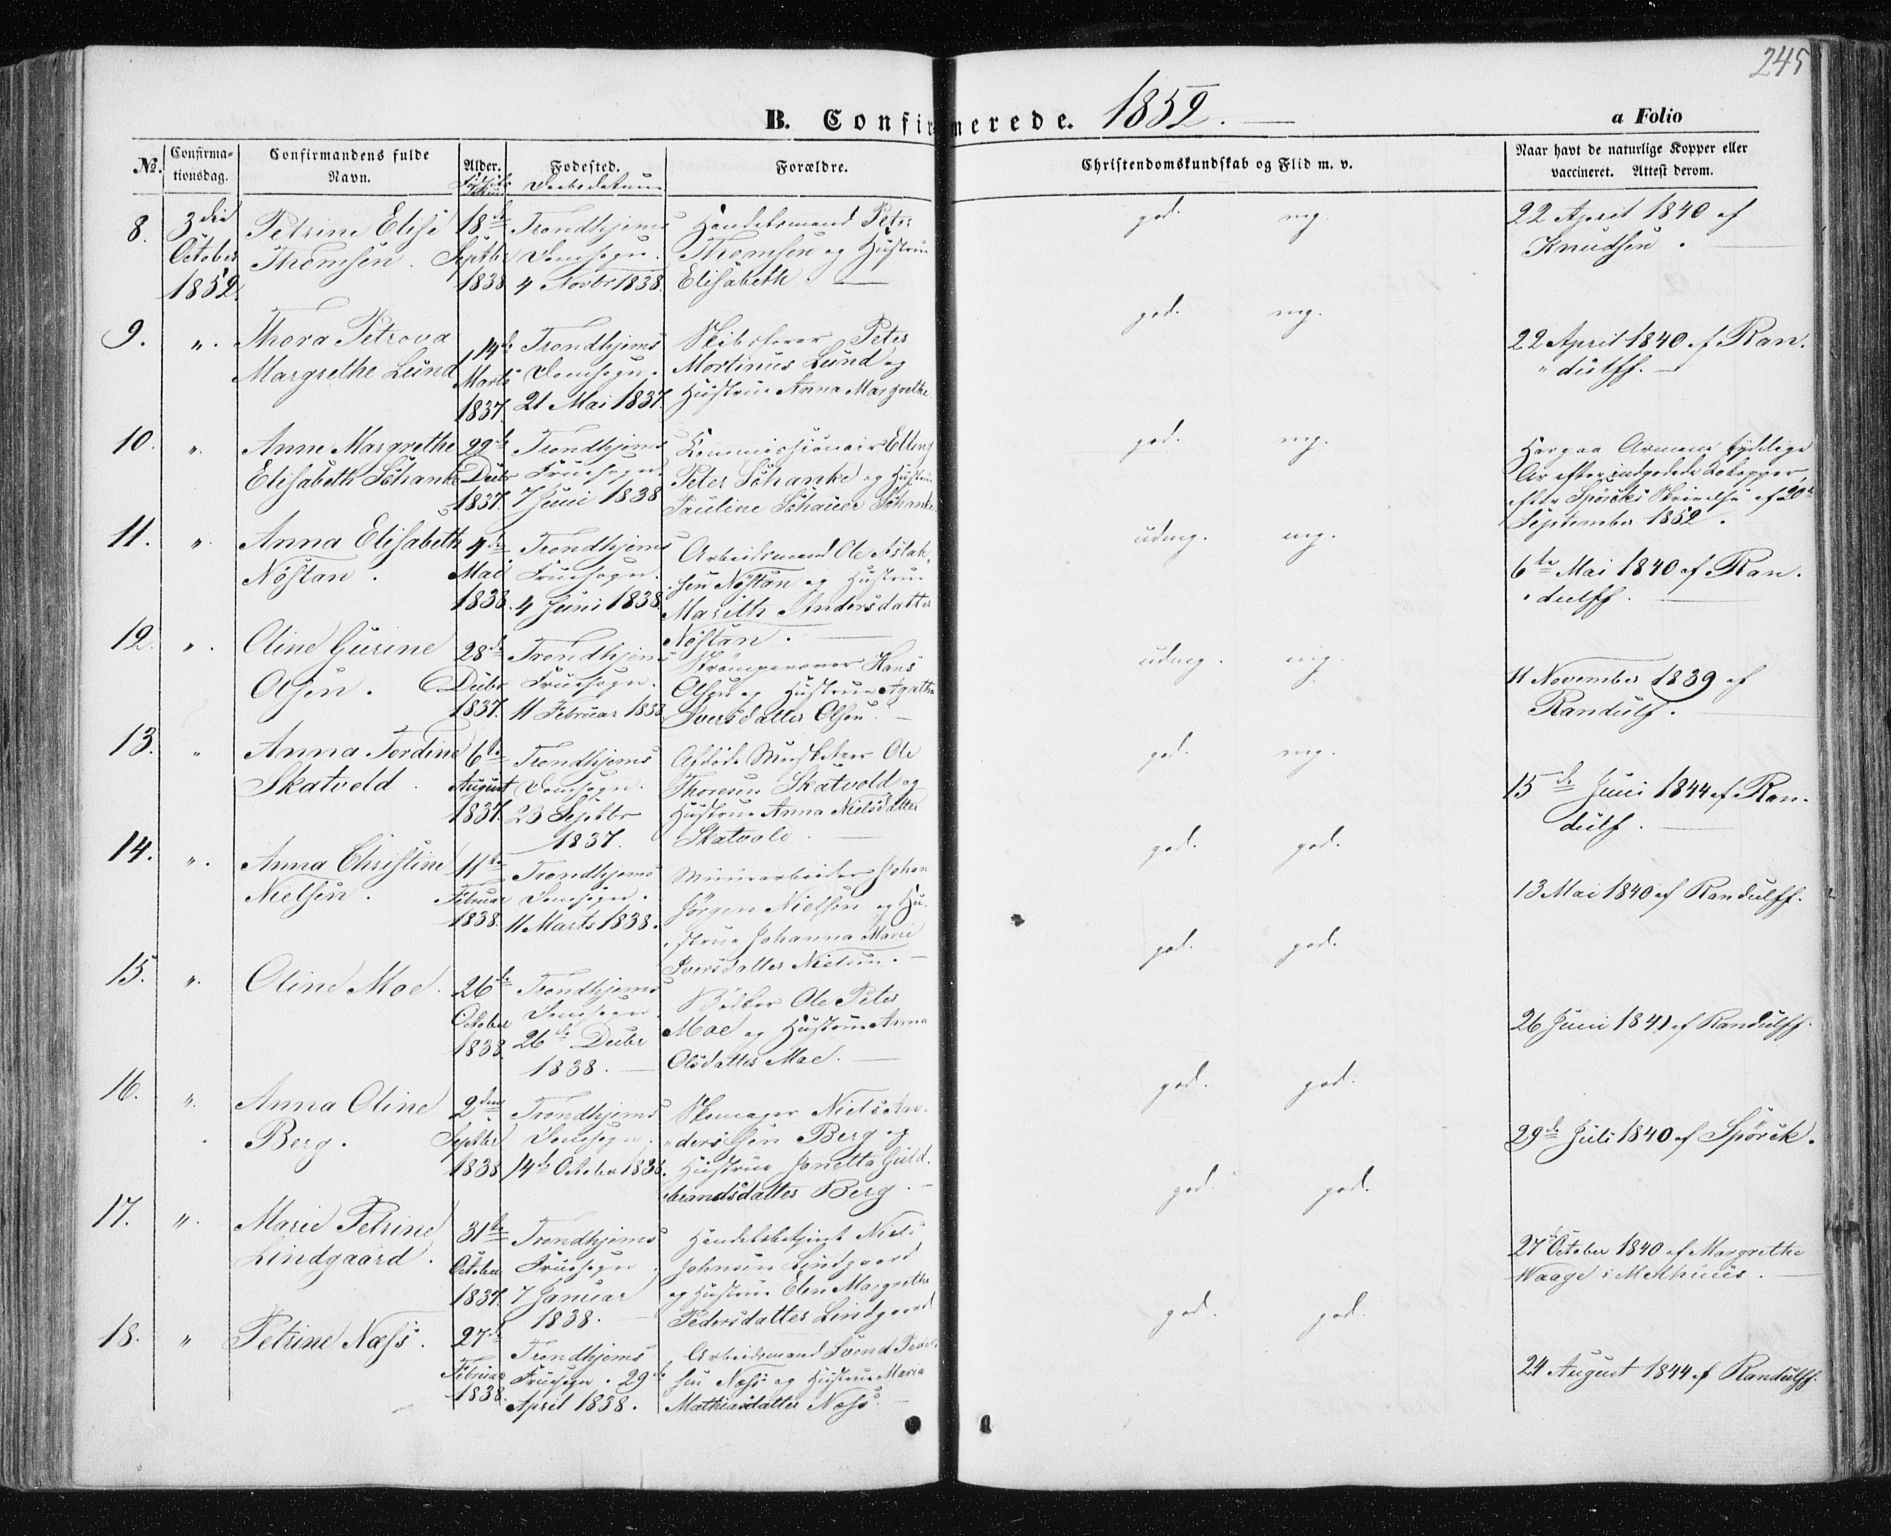 245
B. Confirmerede. 1852.
a Folio
No.
Confirma-
tionsdag.
Confirmandens fulde
Navn.
Alder.
Fødested.
Daabsdatum
Forældre.
Christendomskundskab og Flid m. v.
Naar havt de naturlige Kopper eller
vaccineret. Attest derom.
8. 3die October 1852. Petrine Elise Thomsen. 18de Septbr 1838 Trondhjems Domsogn. 4 Novbr 1838. Handelsmand Peter Thomsen og Hustru Elisabeth. god. mg. 22 April 1840 af Knudsen.
9. ". Thora Petrova Margrethe Lund 14de Marts 1837. Trondhjems Domsogn. 21 Mai 1837. Peter Mortinus Lund og Hustru Anna Margrethe god. mg. 22 April 1840 af Randulff.
10. ". Anne Margrethe Elisabeth Schanke 22de Decbr 1837. Trondhjems Fruesogn. 7 Juni 1838 Commissionair Elling Peter Schanke og Hustru Pauline Schanke god. mg. Har paa Armene tydelige Ar efter indpodede Kokopper, efter Spörcks Skrivelse af 20de September 1852.
11. ". Anna Elisabeth Nöstan. 4de Mai 1838. Trondhjems Fruesogn. 4 Juni 1838. Arbeidsmand Ole Aslaksen Nöstan og Hustru Marith Andersdatter Nöstan. udmg. mg. 6te Mai 1840 af Randulff.
12. ". Oline Gurine Olsen. 28de Decbr 1837. Trondhjems Fruesogn. 11 Februar 1838 Hans Olsen og Hustru Agathe Iversdatter Olsen. udmg. mg. 11 November 1839 af Randulf.
13. " Anna Tordine Skatvold. 6te August 1837. Trondhjems Domsogn. 23 Septbr 1837. Afdöde Musketeer Ole Thoresen Skatvold og Hustru Anna Nielsdatter Skatvold. god. mg. 15de Juni 1844 af Randulf.
14. ". Anna Christine Nielsen. 11te Februar 1838. Trondhjems Domsogn. 11 Marts 1838. Muurarbeider Johan Jörgen Nielsen og Hustrue Johanna Marie Iversdatter Nielsen. god. god. 13 Mai 1840 af Randulff.
15. ". Oline Moe. 26de October 1838. Trondhjems Domsogn. 26de Decbr 1838. Bödker Ole Peter Moe og Hustrue Anna Olsdatter Moe. god. god. 26 Juni 1841 af Randulff.
16. ". Anna Oline Berg. 2den Septbr 1838 Trondhjems Domsogn. 14de October 1838. Skomager Niels Andersen Berg og Hustrue Jonetta Guldbrandsdatter Berg. god. god. 29de Juli 1840 af Spörck.
17. ". Marie Petrine Lindgaard. 31te October 1837. Trondhjems Fruesogn. 7 Januar 1838. Handelsbetjent Niels Johnsen Lindgaard og Hustrue Elen Margrethe Pedersdatter Lindgaard god. god. 27 October 1840 af Margrethe Waage i Melhuus.
18. " Petrine Næss. 27de Februar 1838. Trondhjems Fruesogn. 29de April 1838. Arbeidsmand Svend Pedersen Næss og Hustrue Maria Mathiasdatter Næss. god. god. 24 August 1844 af Randulff.